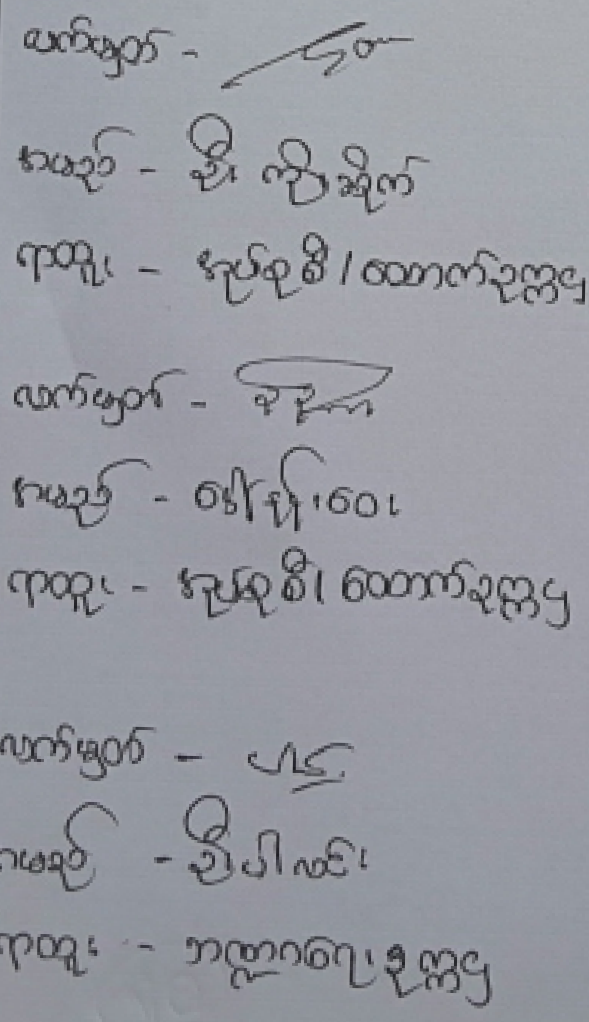 လက်မှတ် -
အမည် - ဦး ကိုဆိုက်
ရာထူး - အုပ်စု ၆ / ထောက်ဥက္ကဌ
လက်မှတ် -
အမည် - ဒေါ်
ရာထူး - အုပ်စု ၆ / ထောက်ဥက္ကဌ
လက်မှတ် -
အမည် - ဦးပါလင်း
ရာထူး - ဘဏ္ဍာရေးဥက္ကဌ